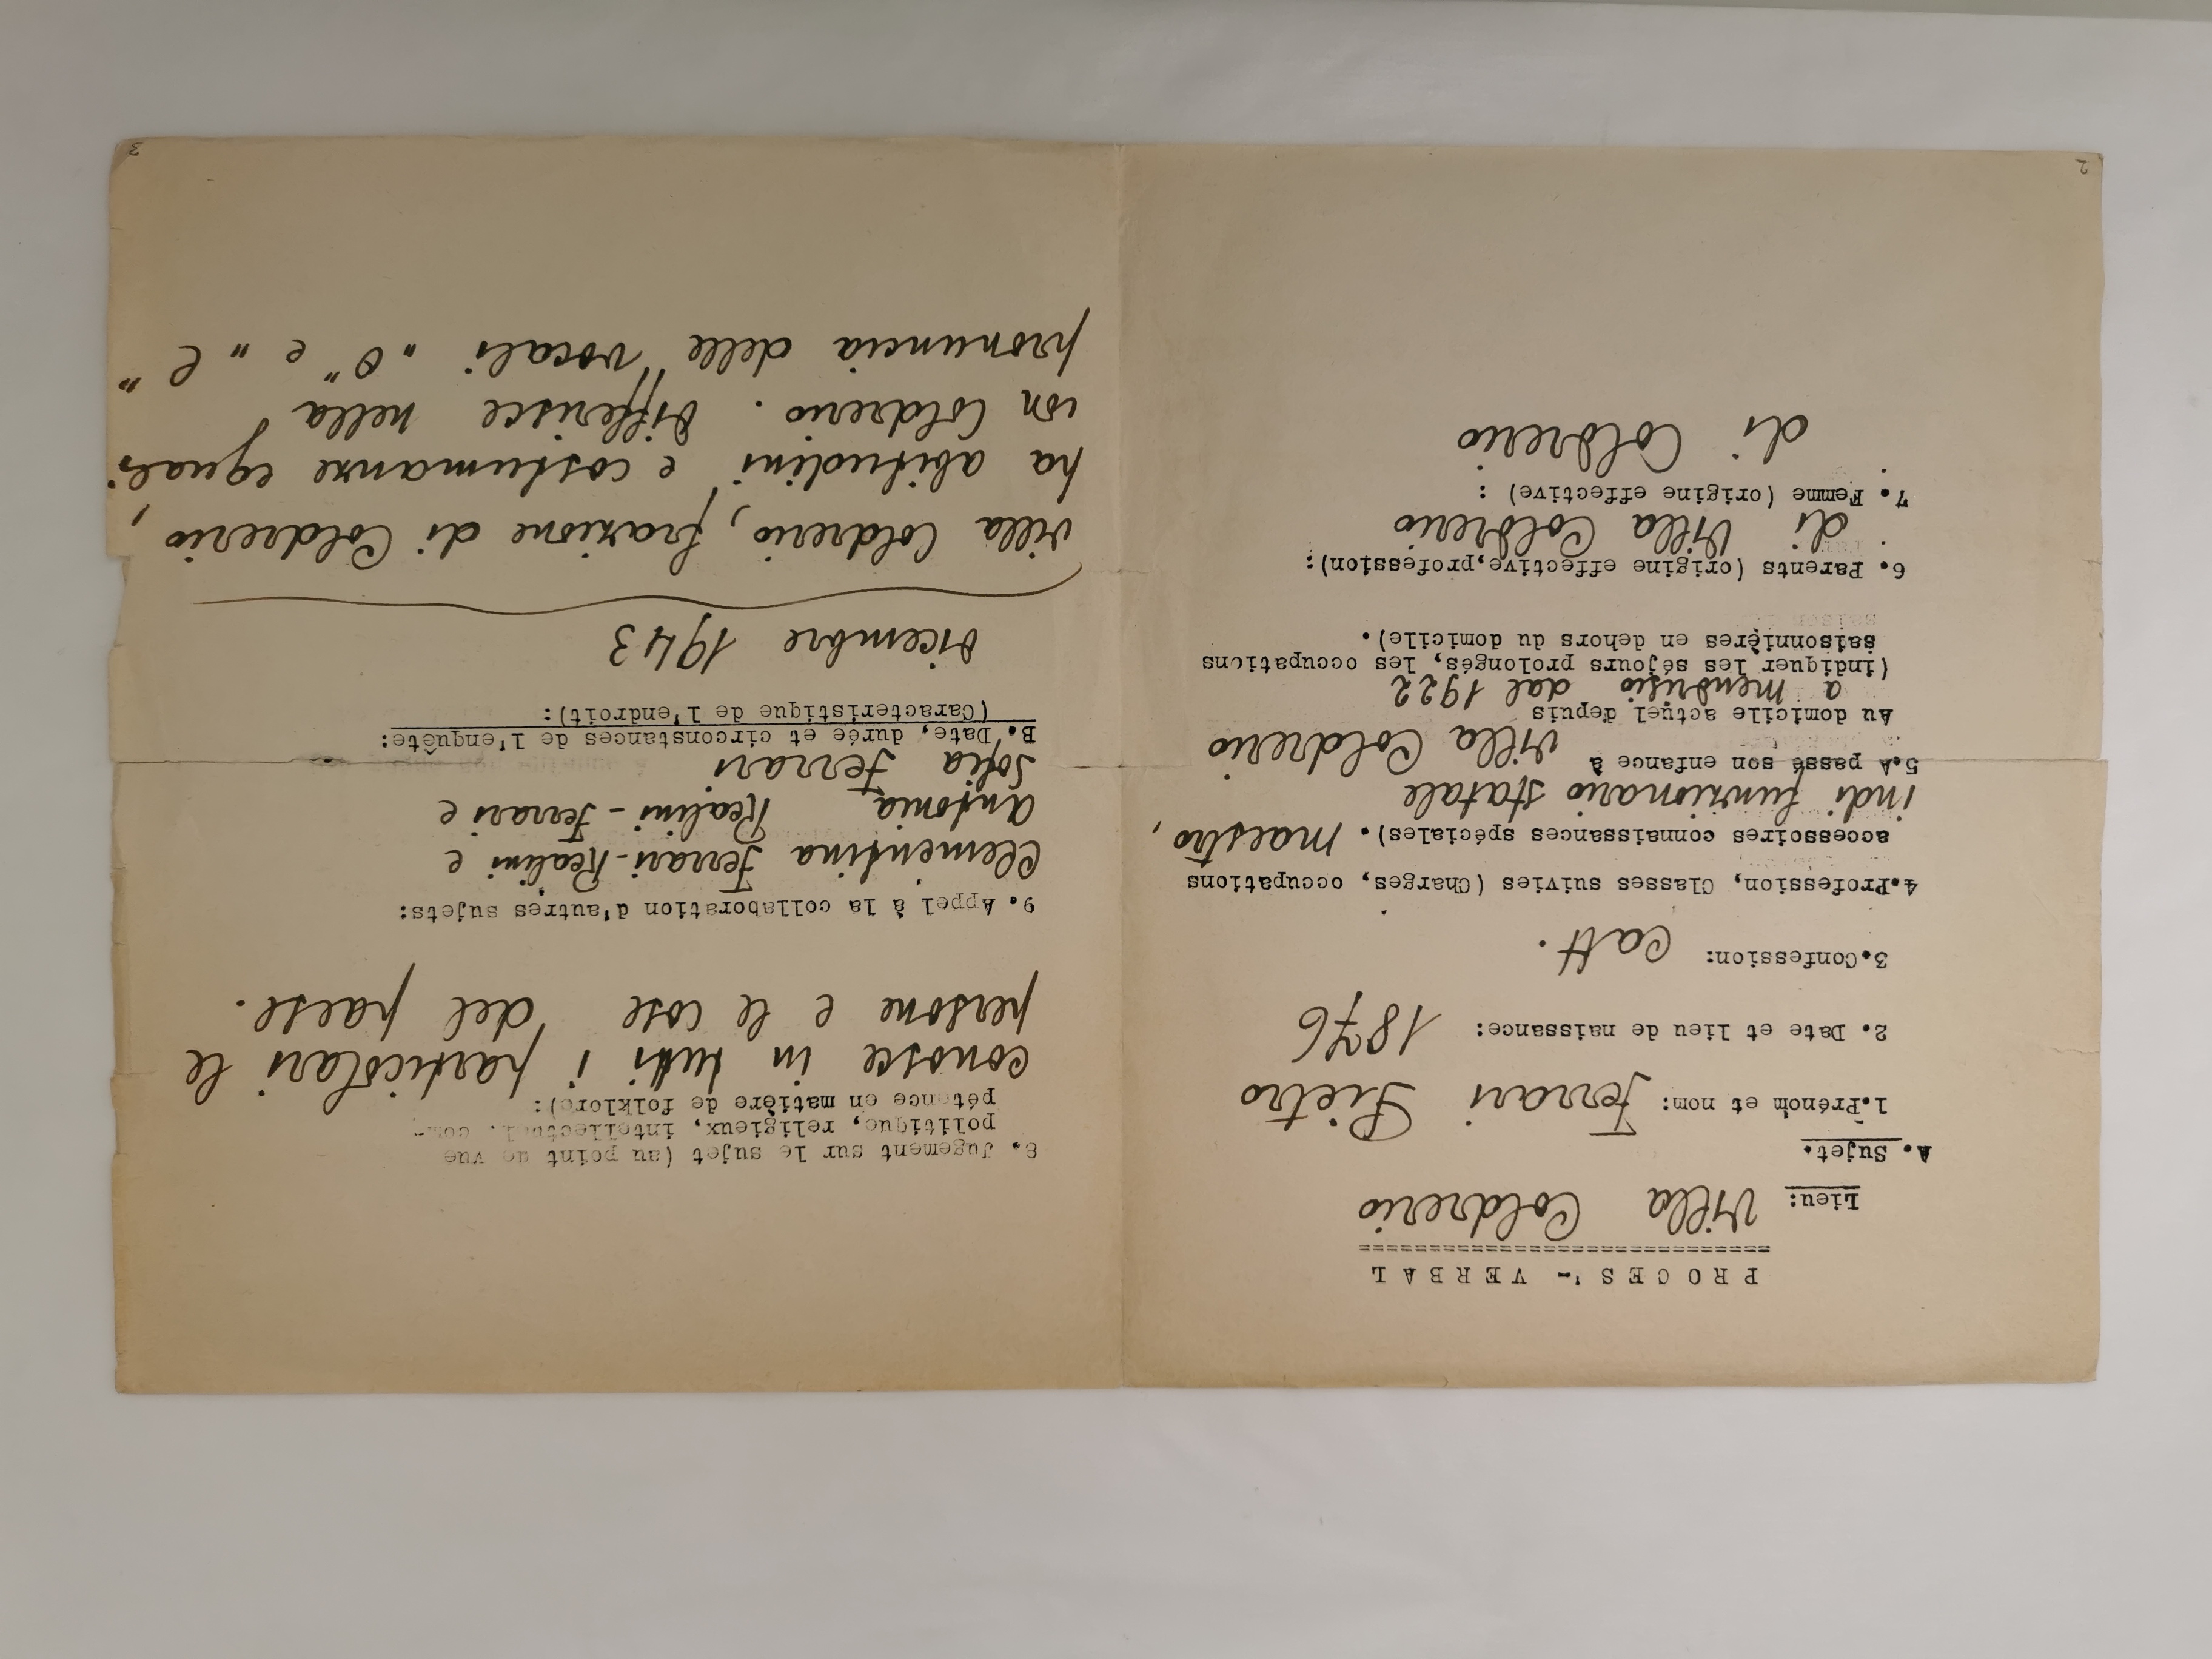 PROCES'- VERBAL
==============================
Lieu: Villa Coldrerio
A. Sujet.
1.Prénom et nom: Ferrari Pietro
2. Date et lieu de naissance: 1876
3.Confession: Catt.
4.Profession, Classes suivies (Charges, occupations
accessoires connaissances spéciales). Maestro,
indi funzionario statale
5.A passé son enfance à Villa Coldrerio
Au domicile actuel depuis
a Mendrisio dal 1922
(indiquer les séjours prolongés, les occupations
saisonnières en dehors du domicile).
6. Parents (origine effective,profession):
di Villa Coldrerio
7. Femme (origine effective) :
di Coldrerio
2
8. Jugement sur le sujet (au point de vue
politique, religieux, intellectuel. com-
pétence en matière de folklore):
conosce in tutti i particolari le
persone e le cose del paese.
9. Appel à la collaboration d'autres sujets:
Clementina Ferrari-Realini e
Antonia Realini-Ferrari e
Sofia Ferrari
B. Date, durée et circonstances de l'enquête:
(Caracteristique de l'endroit):
Dicembre 1943
Villa Coldrerio, frazione di Coldrerio,
ha abitudini e costumanze eguali
con Coldrerio. Differisce nella
pronuncia delle vocali "o" e "e"
3